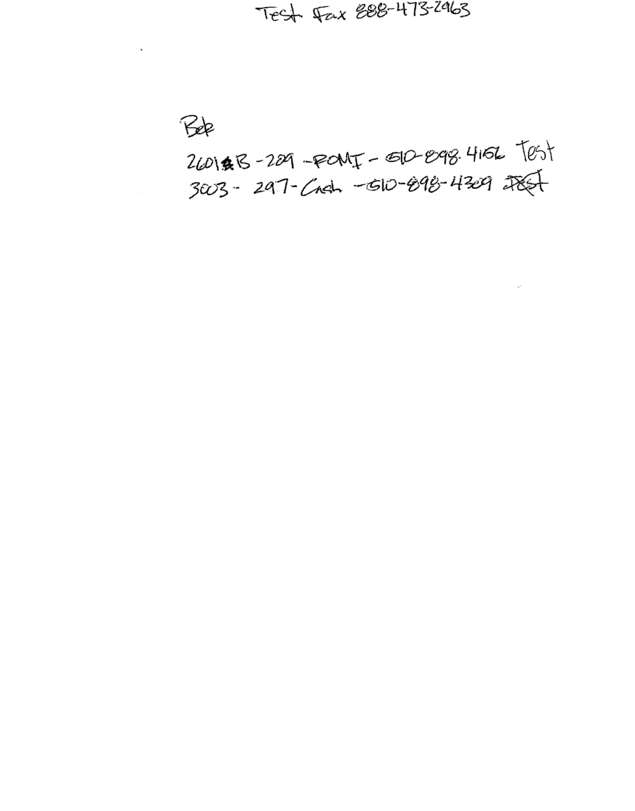 Test Fax 888-473-2963
2601 B - 289 - ROMI - 510-898-4156 Test
3003 - 297 - Cash - 510-898-4309 Test